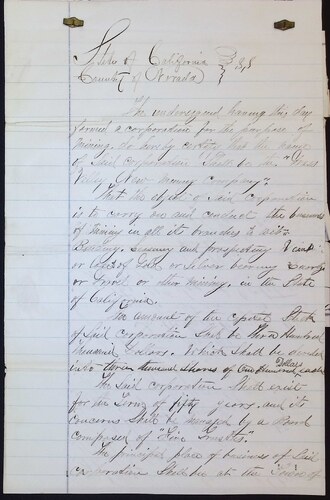 State of California } SS
County of Nevada }
The undersigned having this day
formed a corporation for the purpose of
mining, do hereby certify that the name
of said corporation shall be the "
Valley mining company".
That the object of said corporation
is to carry on and conduct the business
of mining in all its branches to wit-
and prospecting
or of Gold or Silver bearing
or or other mining, in the State
of California.
The amount of the capital Stock
of said corporation shall be Three Hundred
Thousand Dollars. Which shall be divided
into three thousand shares of One Hundred Dollars each
The said corporation shall exist
for the term of fifty years, and its
concerns shall be managed by a Board
composed of "Five Trustees".
The principle place of business of said
corporation shall be at the of